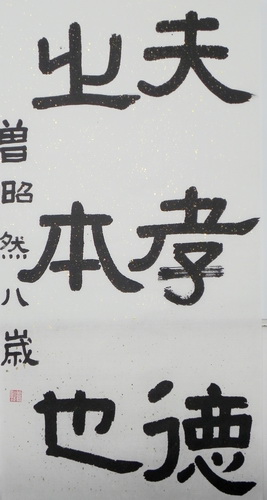 夫孝德
之本也
曽昭然八歳